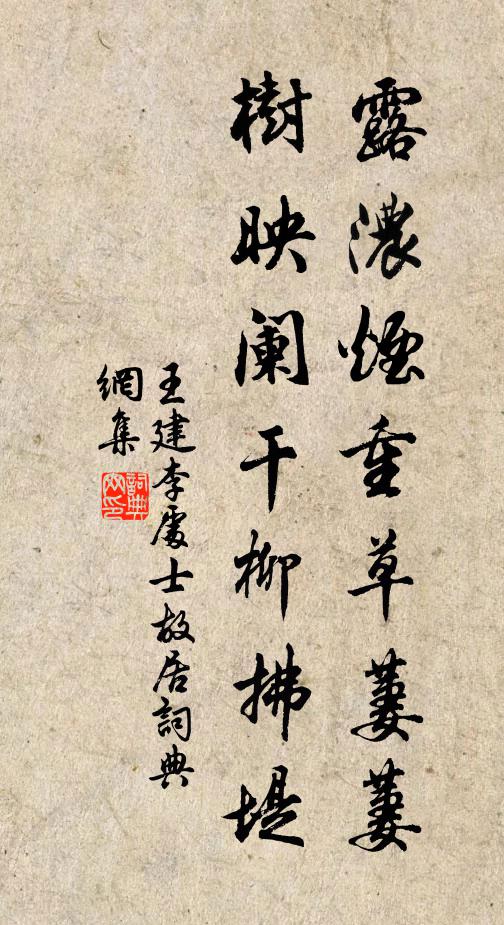 露濃煙重草萋萋
樹映闌干柳拂堤
王建李處士故居詞典
網集
詞典
网印